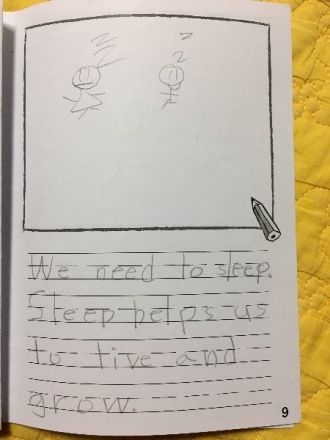 z z
z z
z
We need to sleep.
Sleep helps us
to live and
grow.
9